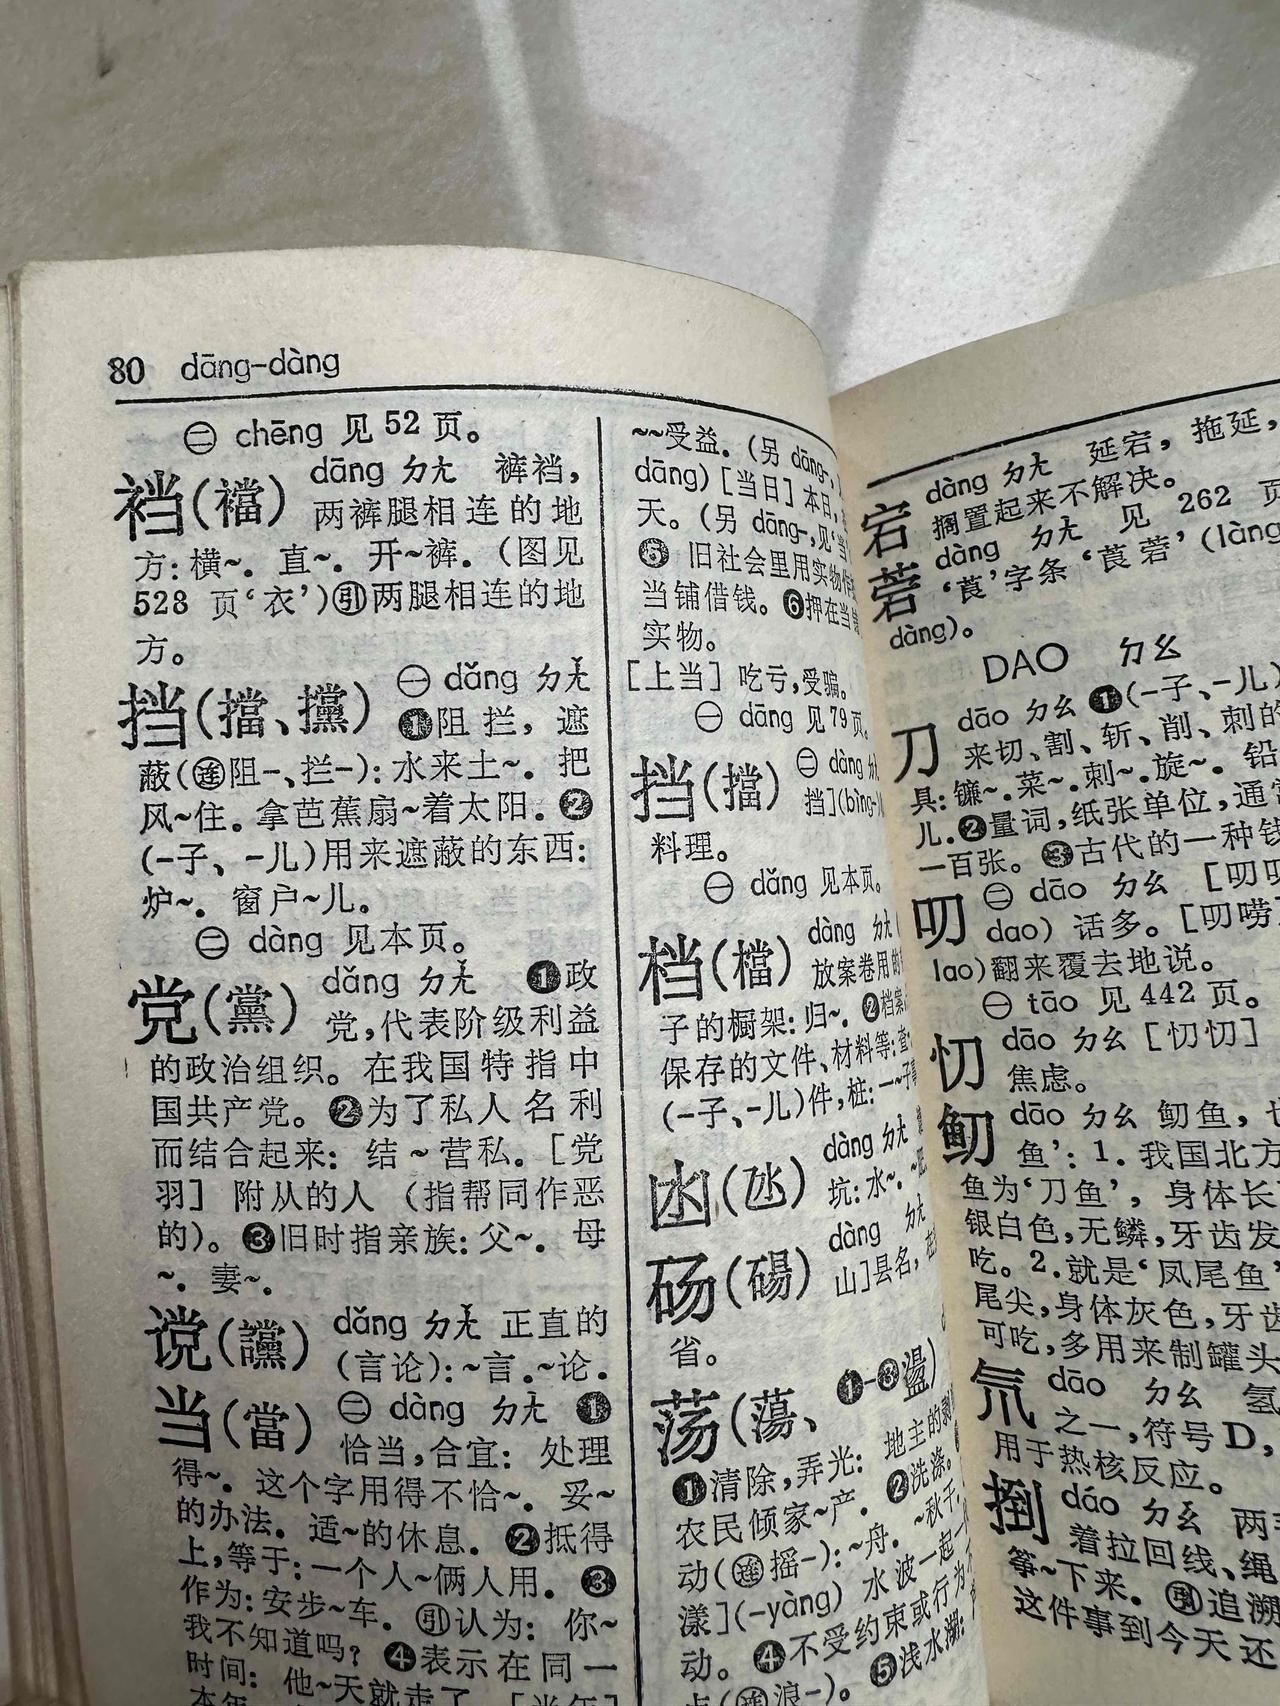 80 dāng-dàng
㊁ chēng 见 52 页。
裆(襠) dāng ㄉㄤ 裤裆,
两裤腿相连的地
方: 横~. 直~. 开~裤. (图见
528 页‘衣’)㊀引两腿相连的地
方。
挡(擋、攩) ㊀ dǎng ㄉㄤˇ
❶阻拦, 遮
蔽(连阻-、拦-): 水来土~. 把
风~住. 拿芭蕉扇~着太阳. ❷
(-子、-儿)用来遮蔽的东西:
炉~. 窗户~儿.
㊁ dàng 见本页。
党(黨) dǎng ㄉㄤˇ ❶政
党,代表阶级利益
的政治组织。在我国特指中
国共产党。❷为了私人名利
而结合起来: 结~营私. [党
羽] 附从的人 (指帮同作恶
的)。❸旧时指亲族: 父~. 母
~. 妻~.
谠(讜) dǎng ㄉㄤˇ 正直的
(言论): ~言. ~论.
当(當) ㊁ dàng ㄉㄤˋ ❶
恰当,合宜: 处理
得~. 这个字用得不恰~. 妥~
的办法. 适~的休息. ❷抵得
上,等于: 一个人~俩人用. ❸
作为: 安步~车. 引认为: 你~
我不知道吗? ❹表示在同一
时间: 他~天就走了. [当年]
~~受益. (另 dāng-,
dāng) [当日] 本日,
天。(另 dāng-,见‘当
❺ 旧社会里用实物作
当铺借钱。❻押在当
实物。
[上当] 吃亏,受骗。
㊀ dāng 见79页。
挡(擋) ㊁ dàng
挡](bìng-)
料理。
㊀ dǎng 见本页。
档(檔) dàng ㄉㄤˋ
放案卷用的
子的橱架: 归~. ❷档案
保存的文件、材料等: 查
(-子、-儿)件,桩: 一~子事
凼(氹) dàng ㄉㄤˋ
坑: 水~.
砀(碭) dàng ㄉㄤˋ
山]县名,
省。
荡(蕩、❶-❸盪)
❶清除,弄光: 地主的剥
农民倾家~产. ❷洗涤。
动(连摇-): ~舟. ~秋千.
漾](-yàng) 水波一起一
动。❹不受约束或行为不
(连浪-)。❺浅水湖:
宕 dàng ㄉㄤˋ 延宕, 拖延,
搁置起来不解决。
菪 dàng ㄉㄤˋ 见 262 页
‘莨’字条 ‘莨菪’ (làng
dàng)。
DAO ㄉㄠ
刀 dāo ㄉㄠ ❶(-子、-儿)
来切、割、斩、削、刺的
具: 镰~. 菜~. 刺~. 旋~. 铅
儿. ❷量词,纸张单位,通常
一百张。❸古代的一种钱
叨 ㊁ dāo ㄉㄠ [叨叨]
dao) 话多。[叨唠]
lao)翻来覆去地说。
㊀ tāo 见 442 页。
忉 dāo ㄉㄠ [忉忉]
焦虑。
鱽 dāo ㄉㄠ 鱽鱼, 也
鱼’: 1. 我国北方
鱼为‘刀鱼’, 身体长
银白色,无鳞,牙齿发
吃。2. 就是‘凤尾鱼’
尾尖,身体灰色,牙齿
可吃,多用来制罐头
氘 dāo ㄉㄠ 氢
之一,符号D,
用于热核反应。
捯 dáo ㄉㄠˊ 两手
着拉回线、绳
筝~下来. 引追溯
这件事到今天还